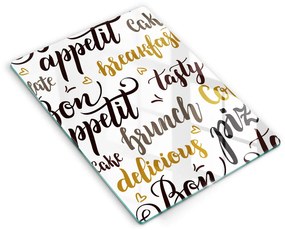 Cake
appetit breakfast
late
Bon tasty
appetit brunch Co
Cake delicious piz
Bon te